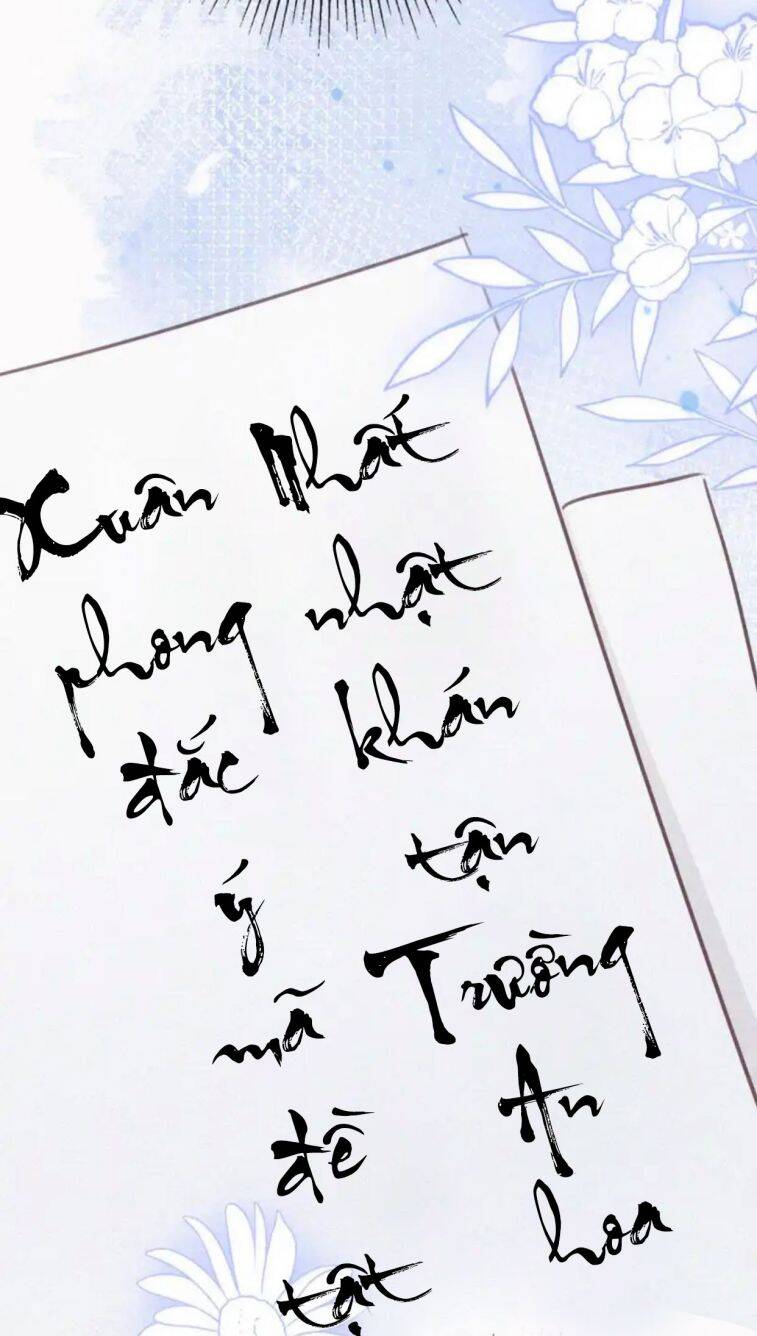 Xuân
phong
đắc
ý
mã
đề
tật
Nhất
nhật
khán
tận
Trường
An
hoa